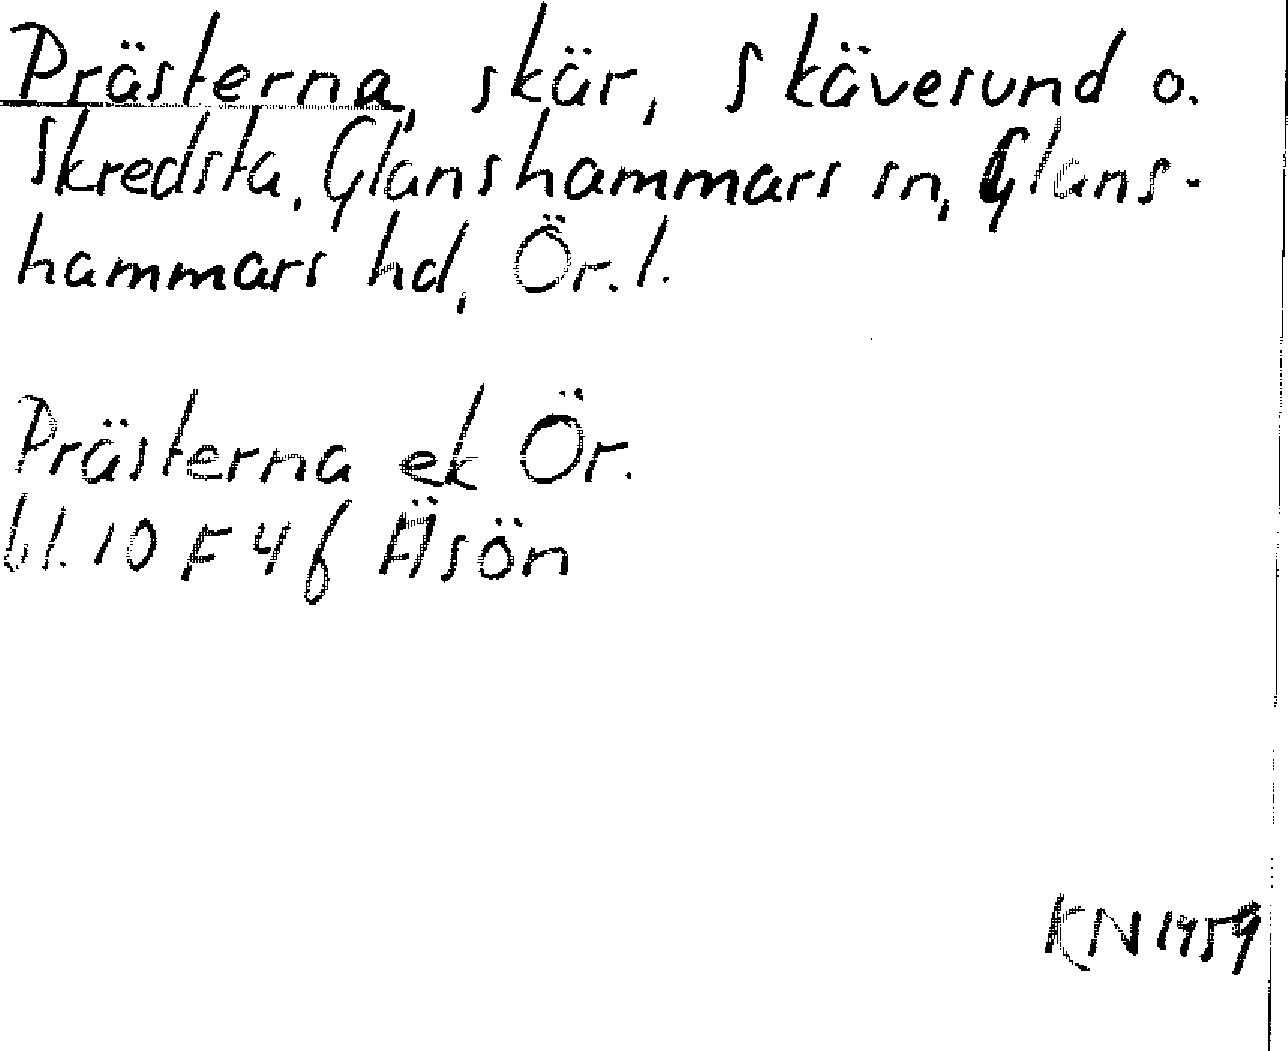 Prästerna, skär, Skävesund o.
Skredsta, Glanshammars sn, Glans-
hammars hd, Ör. l.
Prästerna ek Ör.
bl. 10 F 4 f Äsön
KN 1959